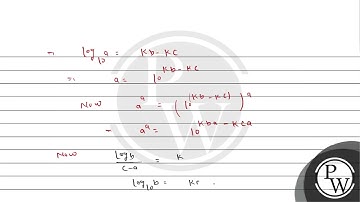 ⇒ log₁₀a = Kb - KC
⇒ a = 10^(Kb - KC)
Now a^a = (10^(Kb - KC))^a
⇒ a^a = 10^(Kba - Kca)
Now log b / c-a = K
log₁₀b = Kc .
PW